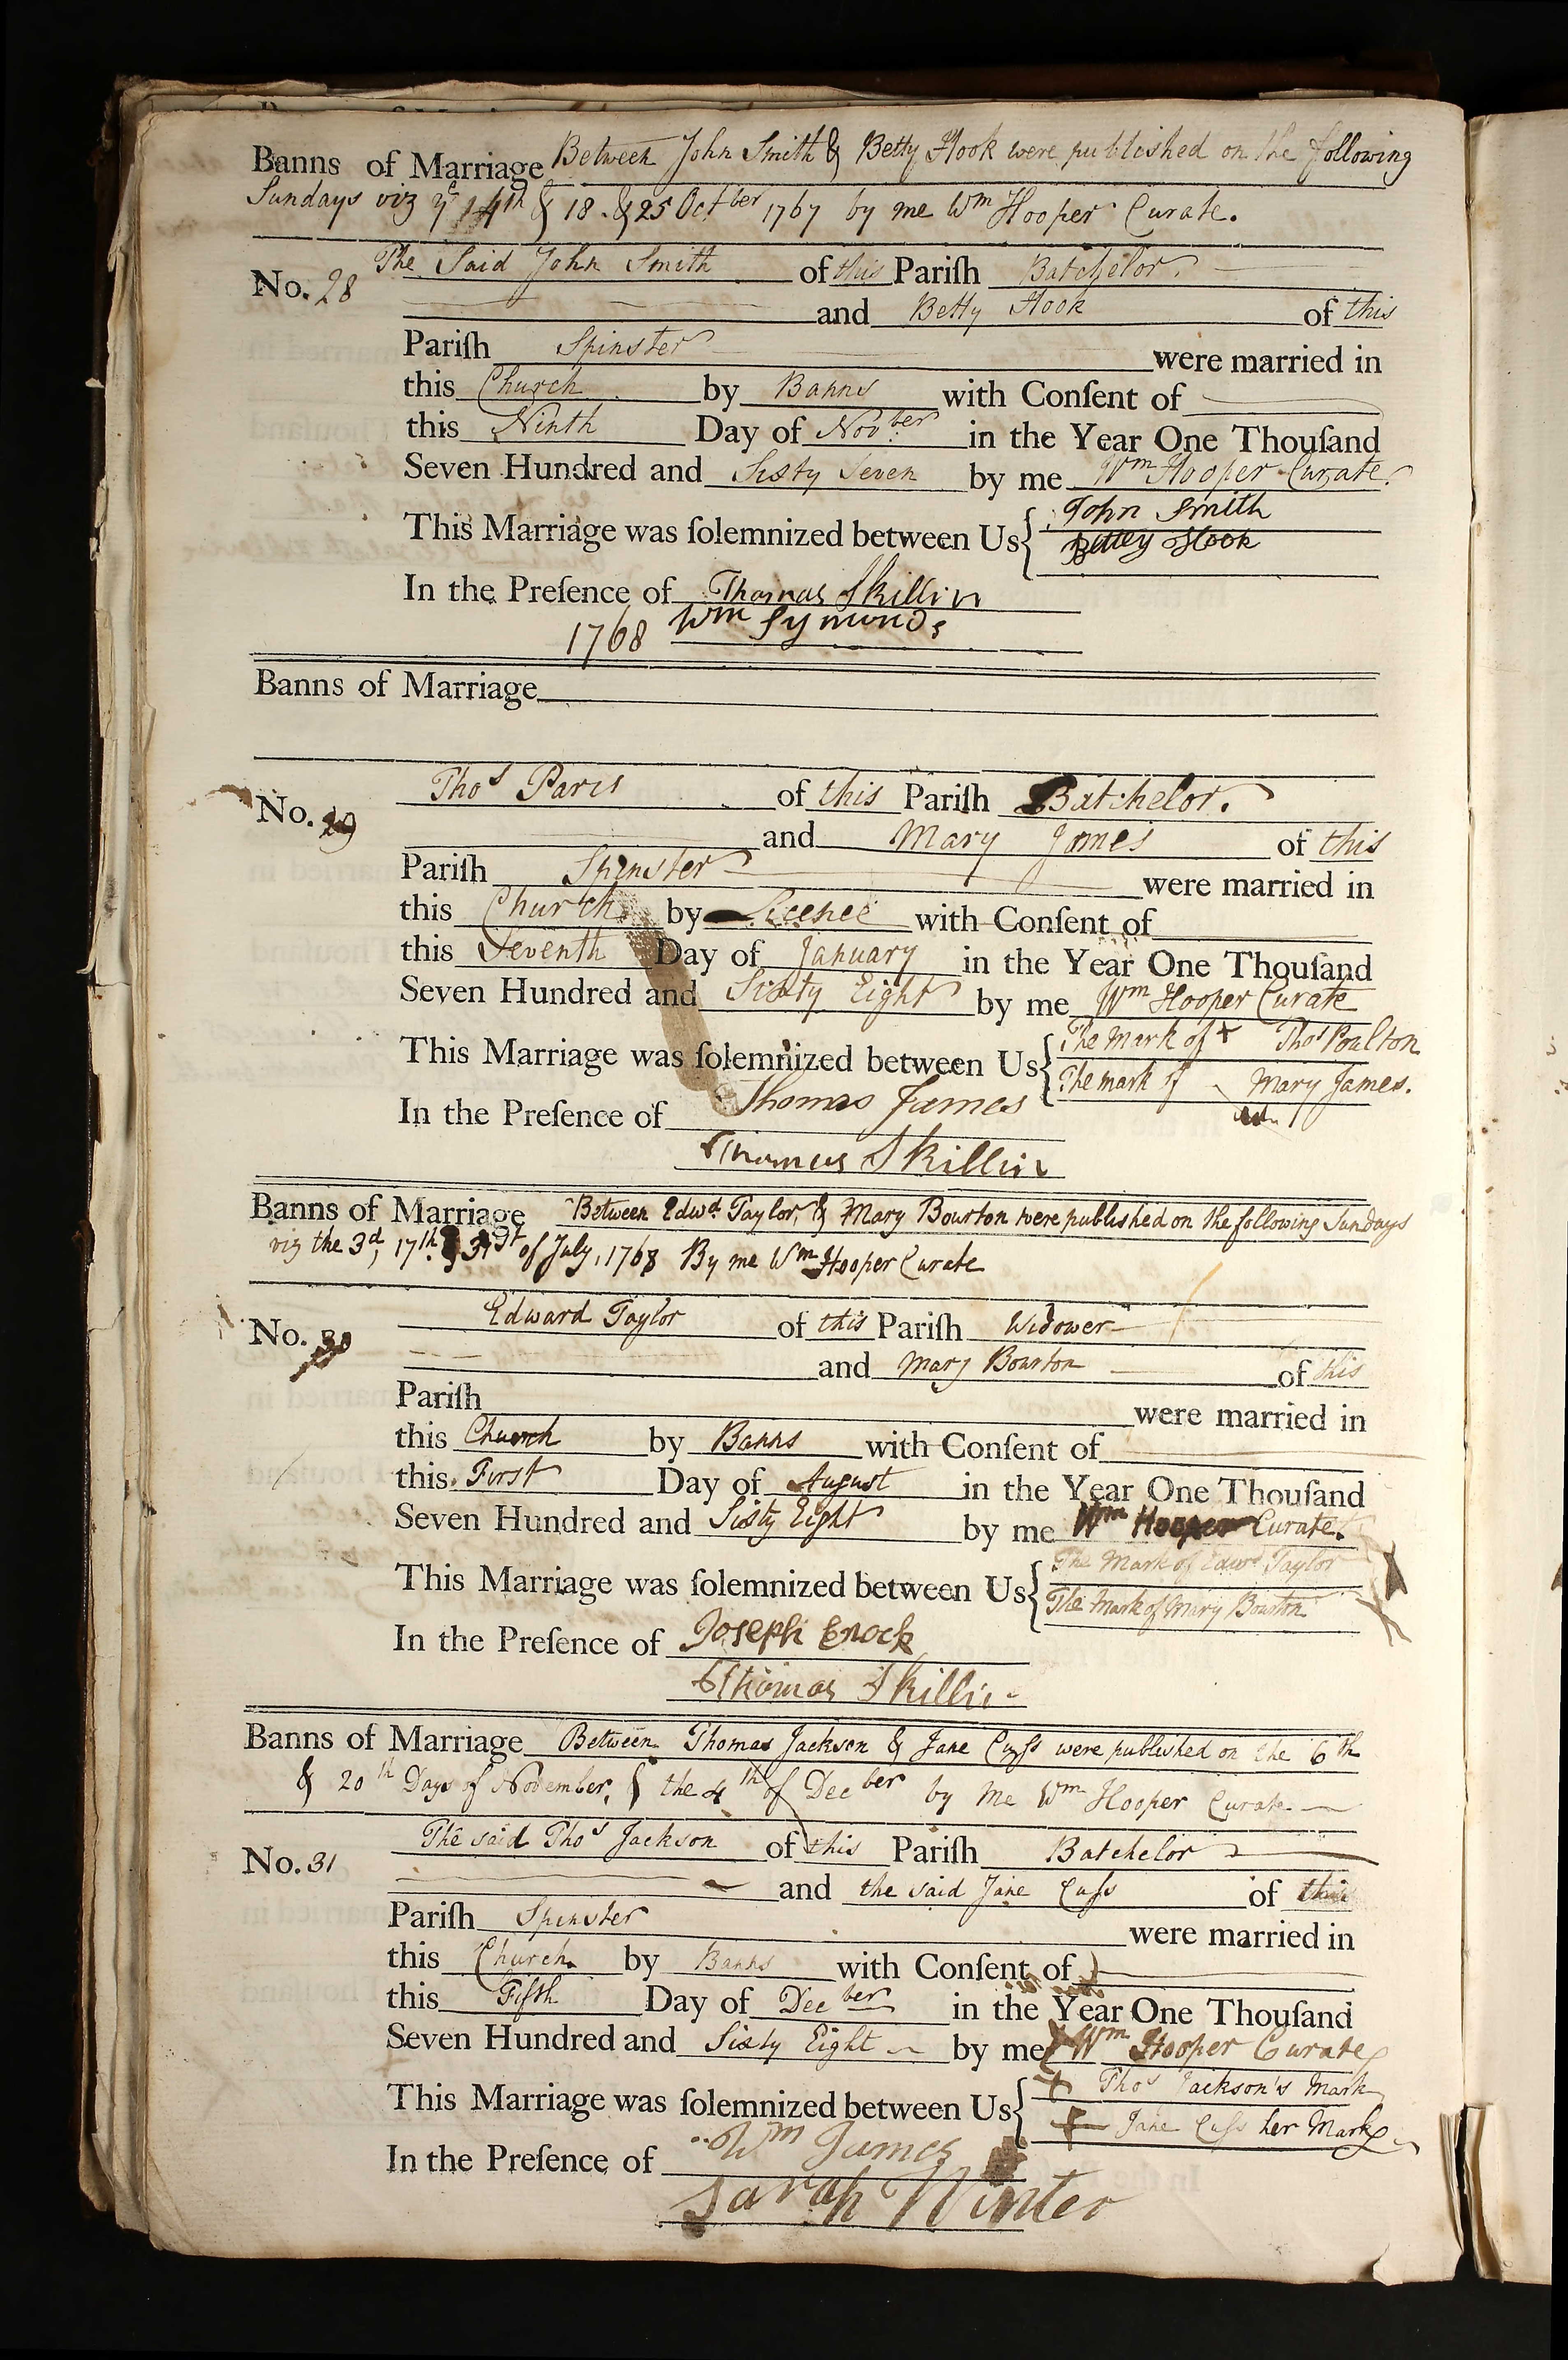 Banns of Marriage Between John Smith & Betty Hook were published on the following
Sundays viz yᵉ 14ᵗʰ & 18. & 25 Octᵇᵉʳ 1767 by me Wᵐ Hooper Curate.
The Said John Smith of this Pariſh Batchelor.
No. 28
and Betty Hook of this
Pariſh Spinster were married in
this Church by Banns with Conſent of
this Ninth Day of Novᵇᵉʳ in the Year One Thouſand
Seven Hundred and Sixty Seven by me Wᵐ Hooper Curate.
This Marriage was ſolemnized between Us { John Smith
Bettey Hook
In the Preſence of Thomas Skillin
1768 Wᵐ Symonds
Banns of Marriage
Thoˢ Paris of this Pariſh Batchelor.
No. 29
and Mary James of this
Pariſh Spinster were married in
this Church by Licence with Conſent of
this Seventh Day of January in the Year One Thouſand
Seven Hundred and Sixty Eight by me Wᵐ Hooper Curate
This Marriage was ſolemnized between Us { The Mark of + Thoˢ Poulton
The mark of Mary James.
In the Preſence of Thomas James
Thomas Skillin
Banns of Marriage Between Edwᵈ Taylor, & Mary Bourton were published on the following Sundays
viz the 3ᵈ, 17ᵗʰ & 31ˢᵗ of July, 1768 By me Wᵐ Hooper Curate
Edward Taylor of this Pariſh Widower
No. 30
and Mary Bourton of this
Pariſh were married in
this Church by Banns with Conſent of
this First Day of August in the Year One Thouſand
Seven Hundred and Sixty Eight by me Wᵐ Hooper Curate.
This Marriage was ſolemnized between Us { The Mark of Edwᵈ Taylor
The Mark of Mary Bourton
In the Preſence of Joseph Enock
Thomas Skillin
Banns of Marriage Between Thomas Jackson & Jane Cuſs were published on the 6ᵗʰ
& 20ᵗʰ Days of November, & the 4ᵗʰ of Decᵇᵉʳ by me Wᵐ Hooper Curate
The said Thoˢ Jackson of this Pariſh Batchelor
No. 31
and the said Jane Cuſs of this
Pariſh Spinster were married in
this Church by Banns with Conſent of
this Fifth Day of Decᵇᵉʳ in the Year One Thouſand
Seven Hundred and Sixty Eight by me Wᵐ Hooper Curate
This Marriage was ſolemnized between Us { + Thoˢ Jackson's Mark
+ Jane Cuſs her Mark
In the Preſence of Wᵐ James
Sarah Winter